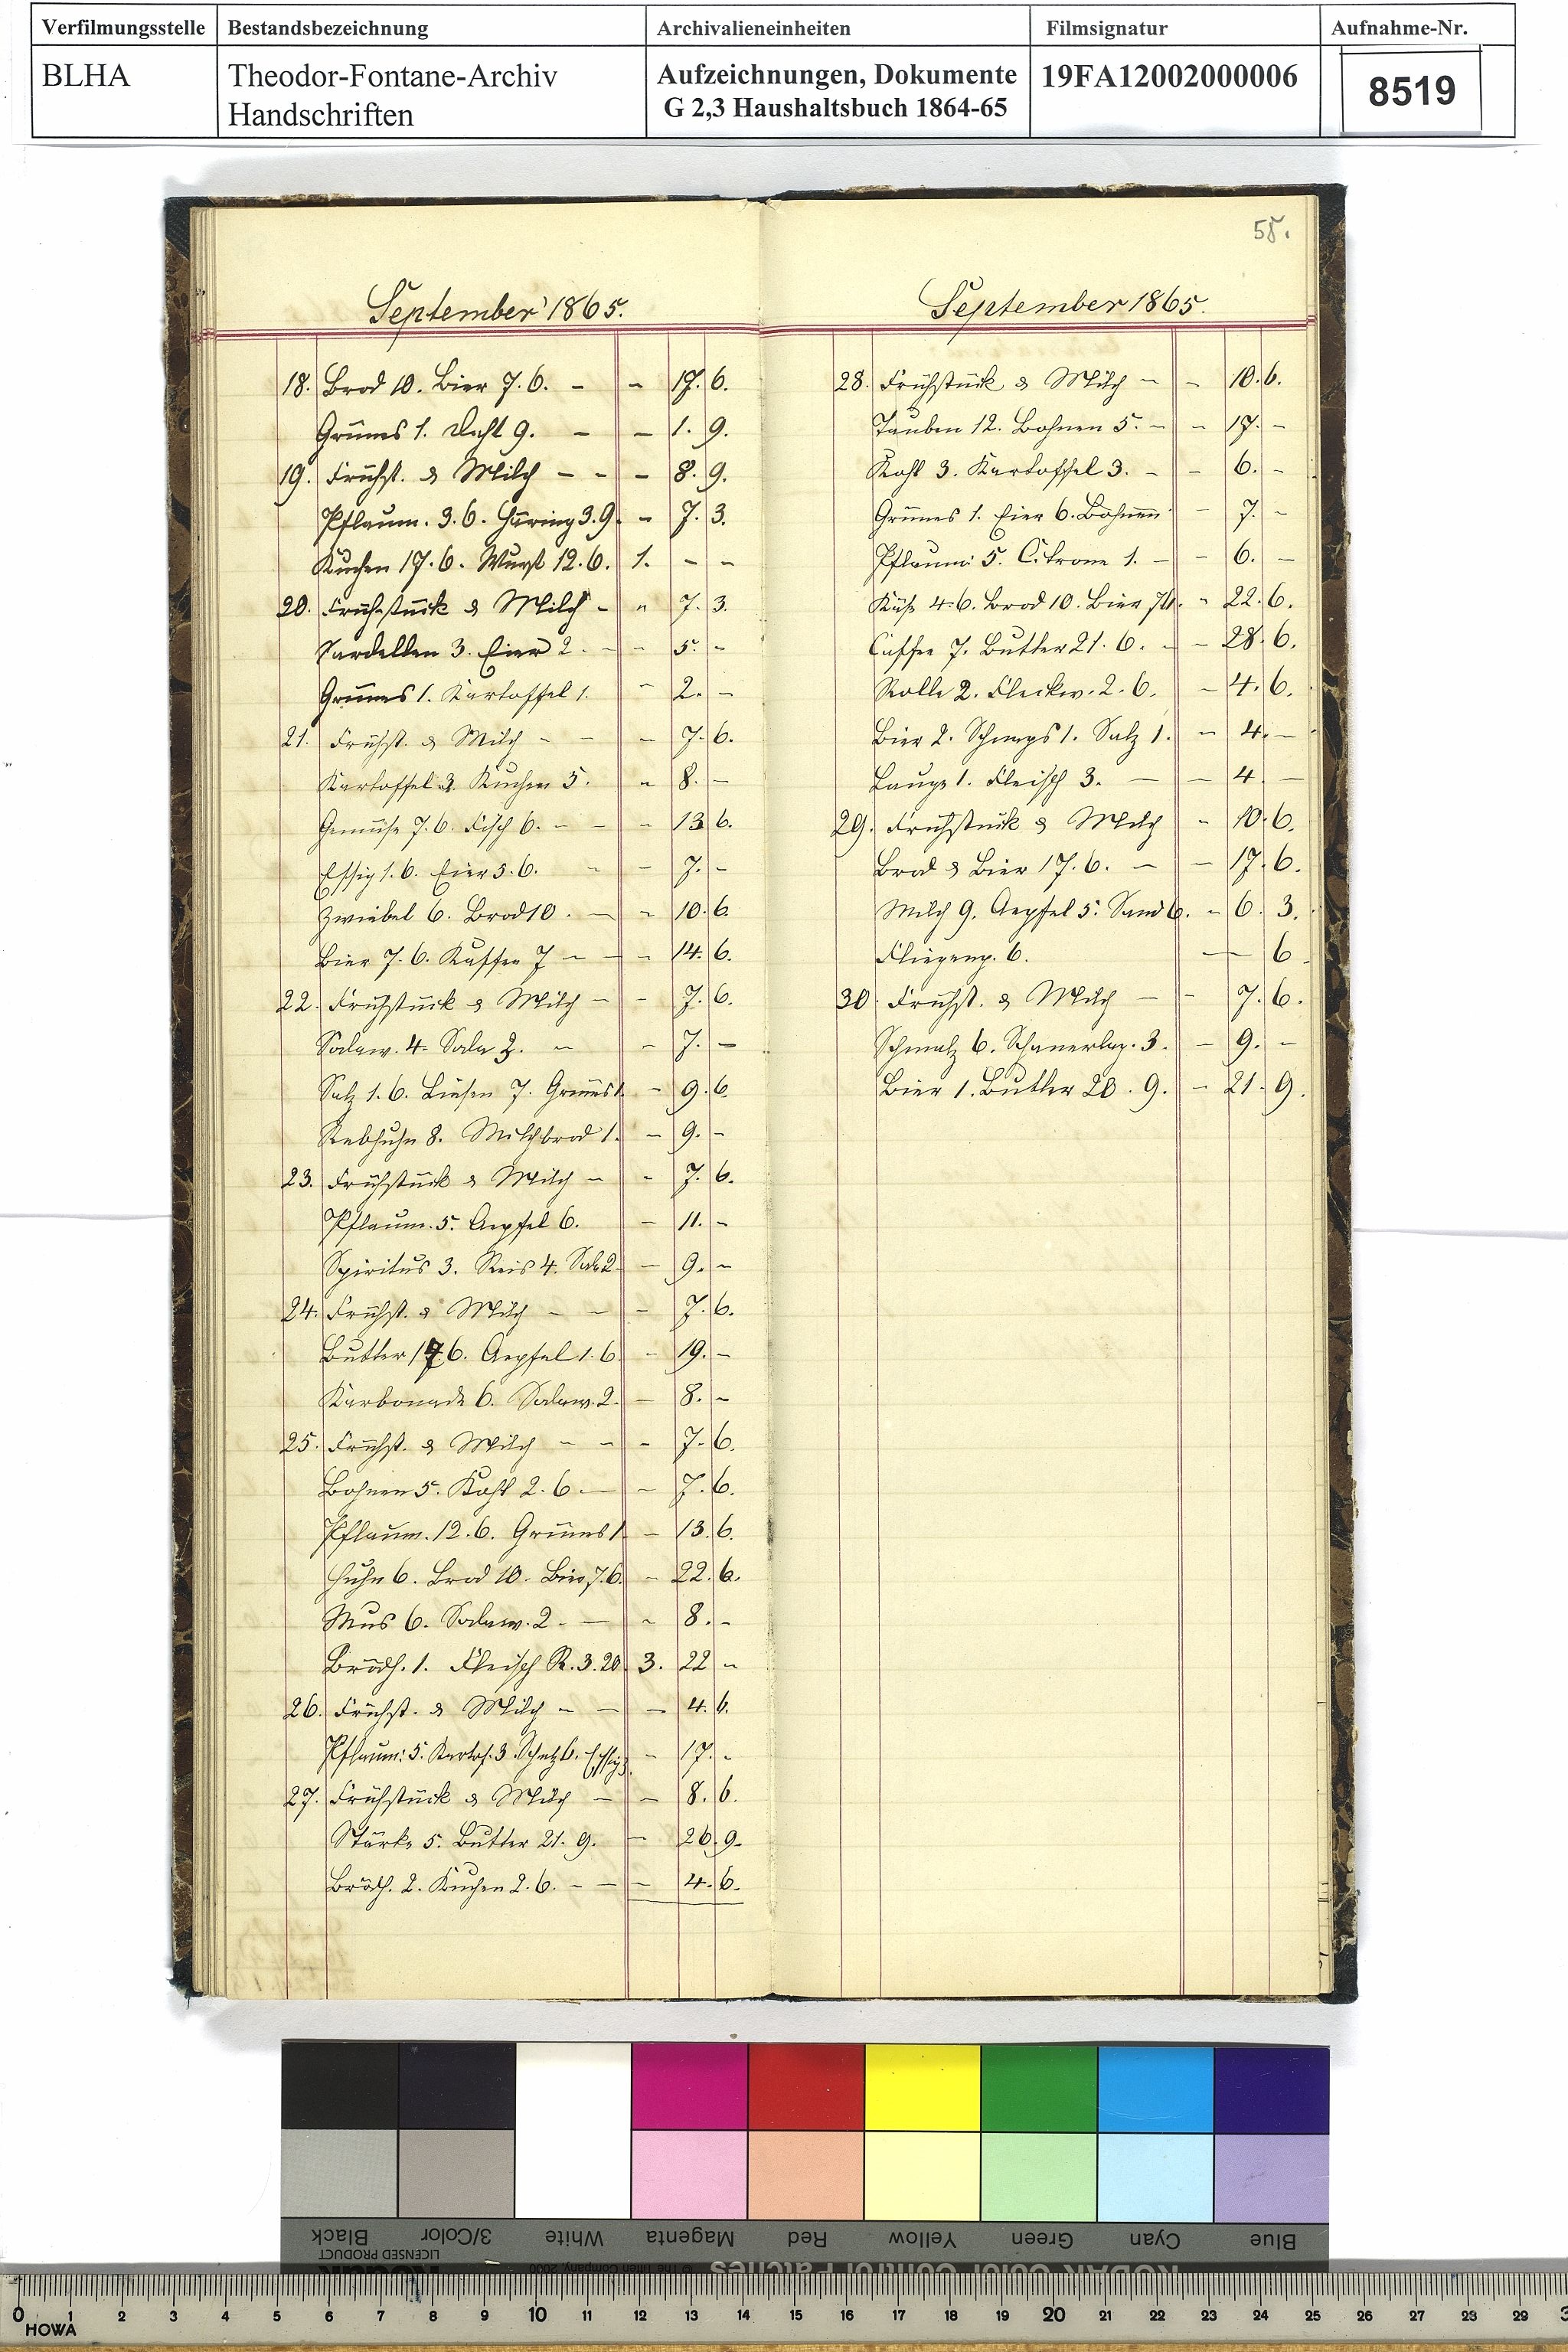 Verfilmungsstelle Bestandsbezeichnung Archivalieneinheiten Filmsignatur Aufnahme-Nr.
BLHA Theodor-Fontane-Archiv Handschriften Aufzeichnungen, Dokumente G 2,3 Haushaltsbuch 1864-65 19FA12002000006 8519
September 1865.
18. Brod 10. Bier 7. 6. - - 17. 6.
Grünes 1. Docht 9. - - 1. 9.
19. Frühst. & Milch - - - 8. 9.
Pflaum. 3. 6. Häring 3. 9. - 7. 3.
Kuchen 17. 6. Wurst 12. 6. 1. - -
20. Frühstück & Milch - - 7. 3.
Sardellen 3. Eier 2. - - 5. -
Grünes 1. Kartoffel 1. - 2. -
21. Frühst. & Milch - - - 7. 6.
Kartoffel 3. Kuchen 5. - 8. -
Gemüse 7. 6. Fisch 6. - - - 13 6.
Essig 1. 6. Eier 5. 6. - - 7. -
Zwiebel 6. Brod 10. - - 10. 6.
Bier 7. 6. Kaffee 7 - - - 14. 6.
22. Frühstück & Milch - - 7. 6.
Sodaw. 4. Soda 3. - - 7. -
Salz 1. 6. Linsen 7. Grünes 1. - 9. 6.
Rebhuhn 8. Milchbrod 1. - 9. -
23. Frühstück & Milch - - 7. 6.
Pflaum. 5. Aepfel 6. - 11. -
Spiritus 3. Reis 4. Soda 2. - 9. -
24. Frühst. & Milch - - - 7. 6.
Butter 17 6. Aepfel 1. 6. - 19. -
Karbonade 6. Sodaw. 2. - 8. -
25. Frühst. & Milch - - - 7. 6.
Bohnen 5. Kohl 2. 6. - - 7. 6.
Pflaum. 12. 6. Grünes 1 - 13. 6.
Huhn 6. Brod 10. Bier 7. 6. - 22. 6.
Mus 6. Sodaw. 2. - - 8. -
Brödch. 1. Fleisch R. 3. 20 3. 22 -
26. Frühst. & Milch - - - 4. 6.
Pflaum: 5. Kartof. 3. 6. Essig 3. - 17. -
27. Frühstück & Milch - - 8. 6.
Stärke 5. Butter 21. 9. - 26. 9.
Brödch. 2. Kuchen 2. 6. - - - 4. 6.
55.
September 1865.
28. Frühstück & Milch - - 10. 6.
Tauben 12. Bohnen 5. - - 17. -
Kohl 3. Kartoffel 3. - - 6. -
Grünes 1. Eier 6. Bohnen - 7. -
Pflaum: 5. Citrone 1. - - 6. -
Käse 4. 6. Brod 10. Bier - 22. 6.
Caffee 7. Butter 21. 6. - - 28. 6.
Rolle 2. Fleckw. 2. 6. - 4. 6.
Bier 2. Schnaps 1. Salz 1. - 4. -
Lauge 1. Fleisch 3. - - 4 -
29. Frühstück & Milch - 10. 6.
Brod & Bier 17. 6. - - 17. 6.
Milch 9. Aepfel 5. Sand 6. - 6. 3.
Fliegenp. 6. - 6
30. Frühst. & Milch - - 7. 6.
Schmalz 6. 3. - 9. -
Bier 1. Butter 20. 9. - 21. 9.
Black 3/Color White Magenta Red Yellow Green Cyan Blue
LICENSED PRODUCT
Kodak © The Tiffen Company, 2000 KODAK Color Control Patches
0 1 2 3 4 5 6 7 8 9 10 11 12 13 14 15 16 17 18 19 20 21 22 23 24 25 26 27 28 29 3
HOWA